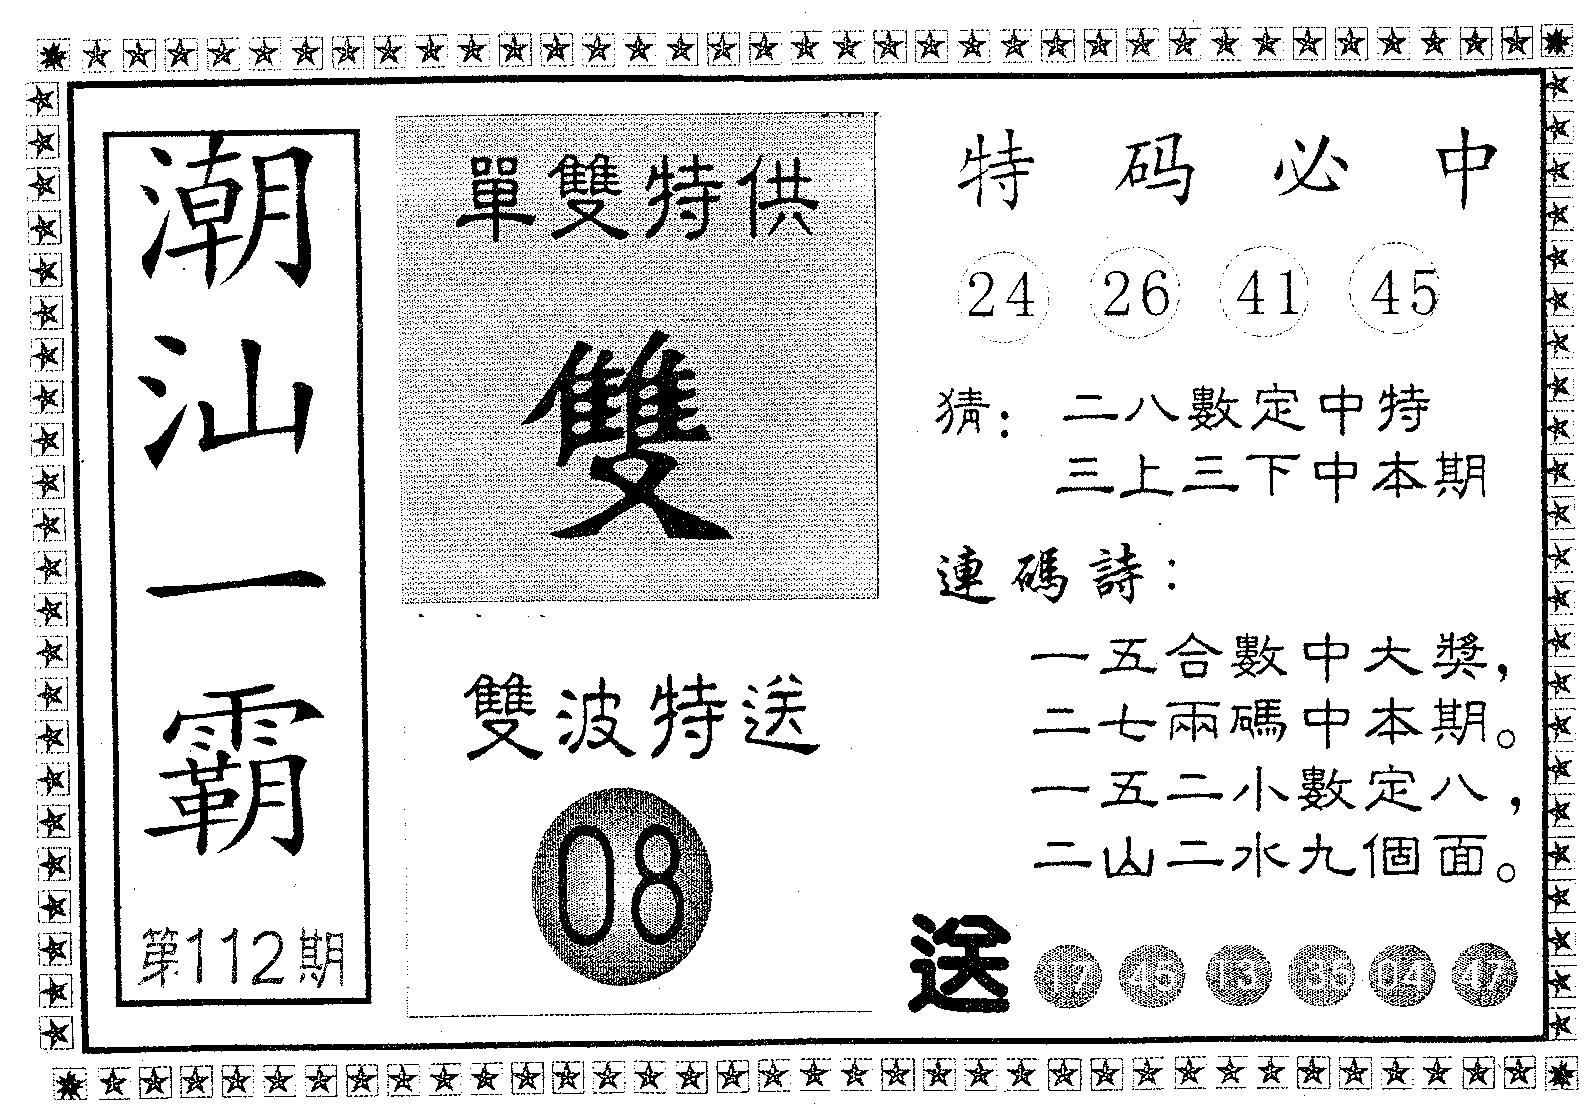 潮汕一霸
第112期
單雙特供
雙
雙波特送
08
特码必中
24 26 41 45
猜：二八數定中特
三上三下中本期
連碼詩：
一五合數中大獎，
二七兩碼中本期。
一五二小數定八，
二山二水九個面。
送 17 45 13 36 04 47